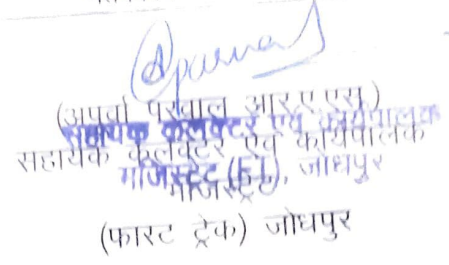 Aparna
(अपर्वा परवाल आर.ए.एस.)
सहायक कलक्टर एवं कार्यपालक
सहायक कलक्टर एवं कार्यपालक
मजिस्ट्रेट (F.T.), जोधपुर
मजिस्ट्रेट
(फास्ट ट्रेक) जोधपुर